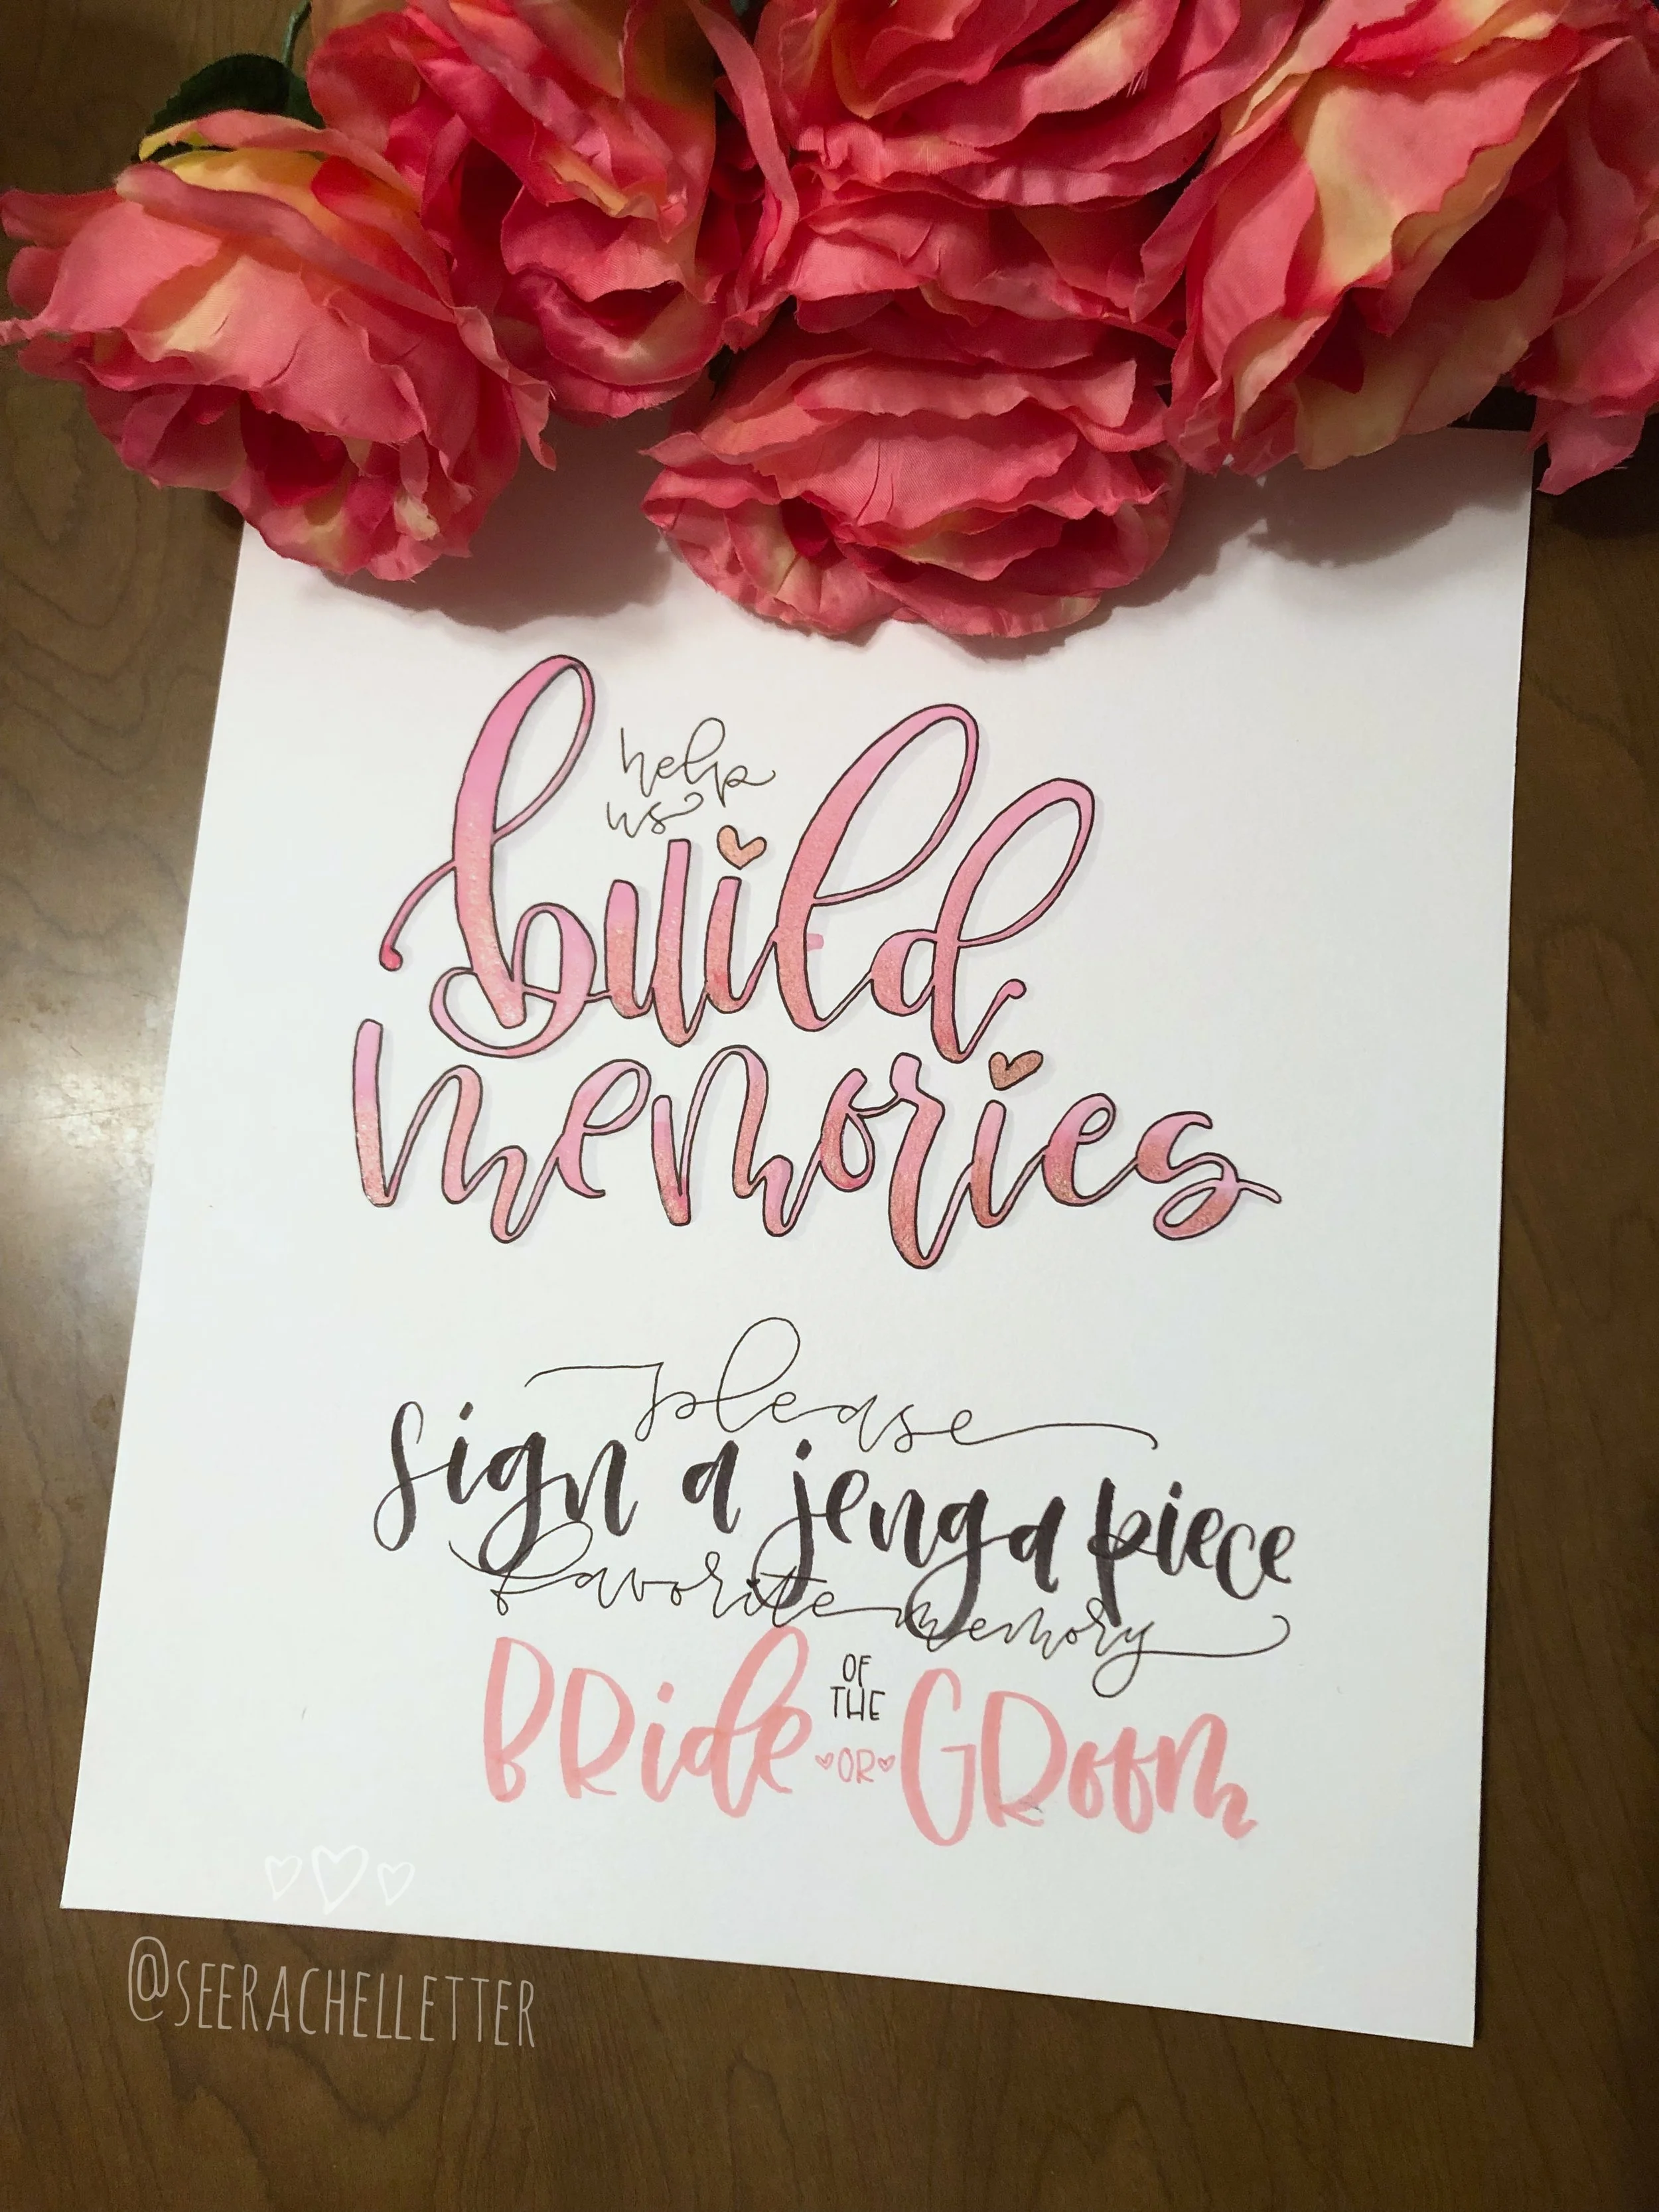 help
us
build
memories
please
sign a jenga piece
favorite memory
OF
THE
BRide OR GROOM
@SEERACHELLETTER